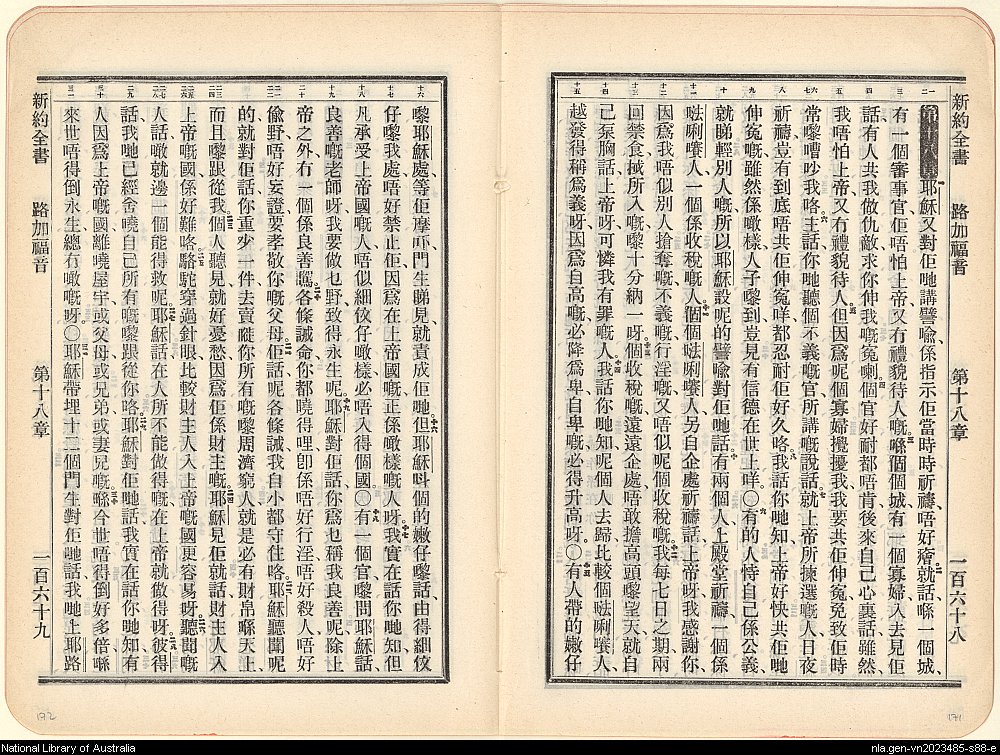 新約全書 路加福音 第十八章 一百六十八
第十八章 耶穌又對佢哋講譬喻係指示佢當時時祈禱唔好癐就話喺一個城
有一個審事官佢唔怕上帝又冇禮貌待人嘅喺個個城有一個寡婦入去見佢
話有人共我做仇敵求你伸我嘅寃喇個官好耐都唔肯後來自己心裏話雖然
我唔怕上帝又冇禮貌待人但因爲呢個寡婦攪擾我我要共佢伸寃免致佢時
常嚟嘈吵我咯主話你哋聽個不義嘅官所講嘅說話就上帝所揀選嘅人日夜
祈禱豈有到底唔共佢伸寃咩都忍耐佢好久咯我話你哋知上帝好快共佢哋
伸寃嘅雖然係噉樣人子嚟到豈見有信德在世上咩〇有的人恃自己係公義
就睇輕別人嘅所以耶穌設呢的譬喻對佢哋話有兩個人上殿堂祈禱一個係
唎人一個係收稅嘅人個個唎人另自企處祈禱話上帝呀我感謝你
因爲我唔似別人搶奪嘅不義嘅行淫嘅又唔似呢個收稅嘅我每七日之期兩
回禁食所入嘅嚟十分納一呀個收稅嘅遠遠企處唔敢擔高頭嚟望天就自
己泵胸話上帝呀可憐我有罪嘅人我話你哋知呢個人去歸比較個唎人
越發得稱爲義呀因爲自高嘅必降爲卑自卑嘅必得升高呀〇有人帶的嫩仔
嚟耶穌處等佢摩吓門生睇見就責成佢哋但耶穌呌個的嫩仔嚟話由得細佼
仔嚟我處唔好禁止佢因爲在上帝國嘅正係噉樣嘅人呀我實在話你哋知但
凡承受上帝國嘅人唔似細佼仔噉樣必唔入得個國〇有一個官嚟問耶穌話
良善嘅老師呀我要做乜野致得永生呢耶穌對佢話你爲乜稱我良善呢除上
帝之外冇一個係良善嘅各條誡命你都曉得哩卽係唔好行淫唔好殺人唔好
偸野唔好妄證要孝敬你嘅父母佢話呢各條誡我自小都守住咯耶穌聽聞呢
的就對佢話你重少一件去賣嗮你所有嘅嚟周濟窮人就是必有財帛喺天上
而且嚟跟從我個人聽見就好憂愁因爲佢係財主嘅耶穌見佢就話財主人入
上帝嘅國係好難咯駱駝穿過針眼比較財主人入上帝嘅國更容易呀聽聞嘅
人話噉就邊一個能得救呢耶穌話在人所不能做得嘅在上帝就做得呀彼得
話我哋已經舍曉自己所有嘅嚟跟從你咯耶穌對佢哋話我實在話你哋知有
人因爲上帝嘅國離曉屋宇或父母或兄弟或妻兒嘅喺今世唔得倒好多倍喺
來世唔得倒永生總冇噉嘅呀〇耶穌帶埋十二個門生對佢哋話我哋上耶路
新約全書 路加福音 第十八章 一百六十九
172
171
National Library of Australia
nla.gen-vn2023485-s88-e